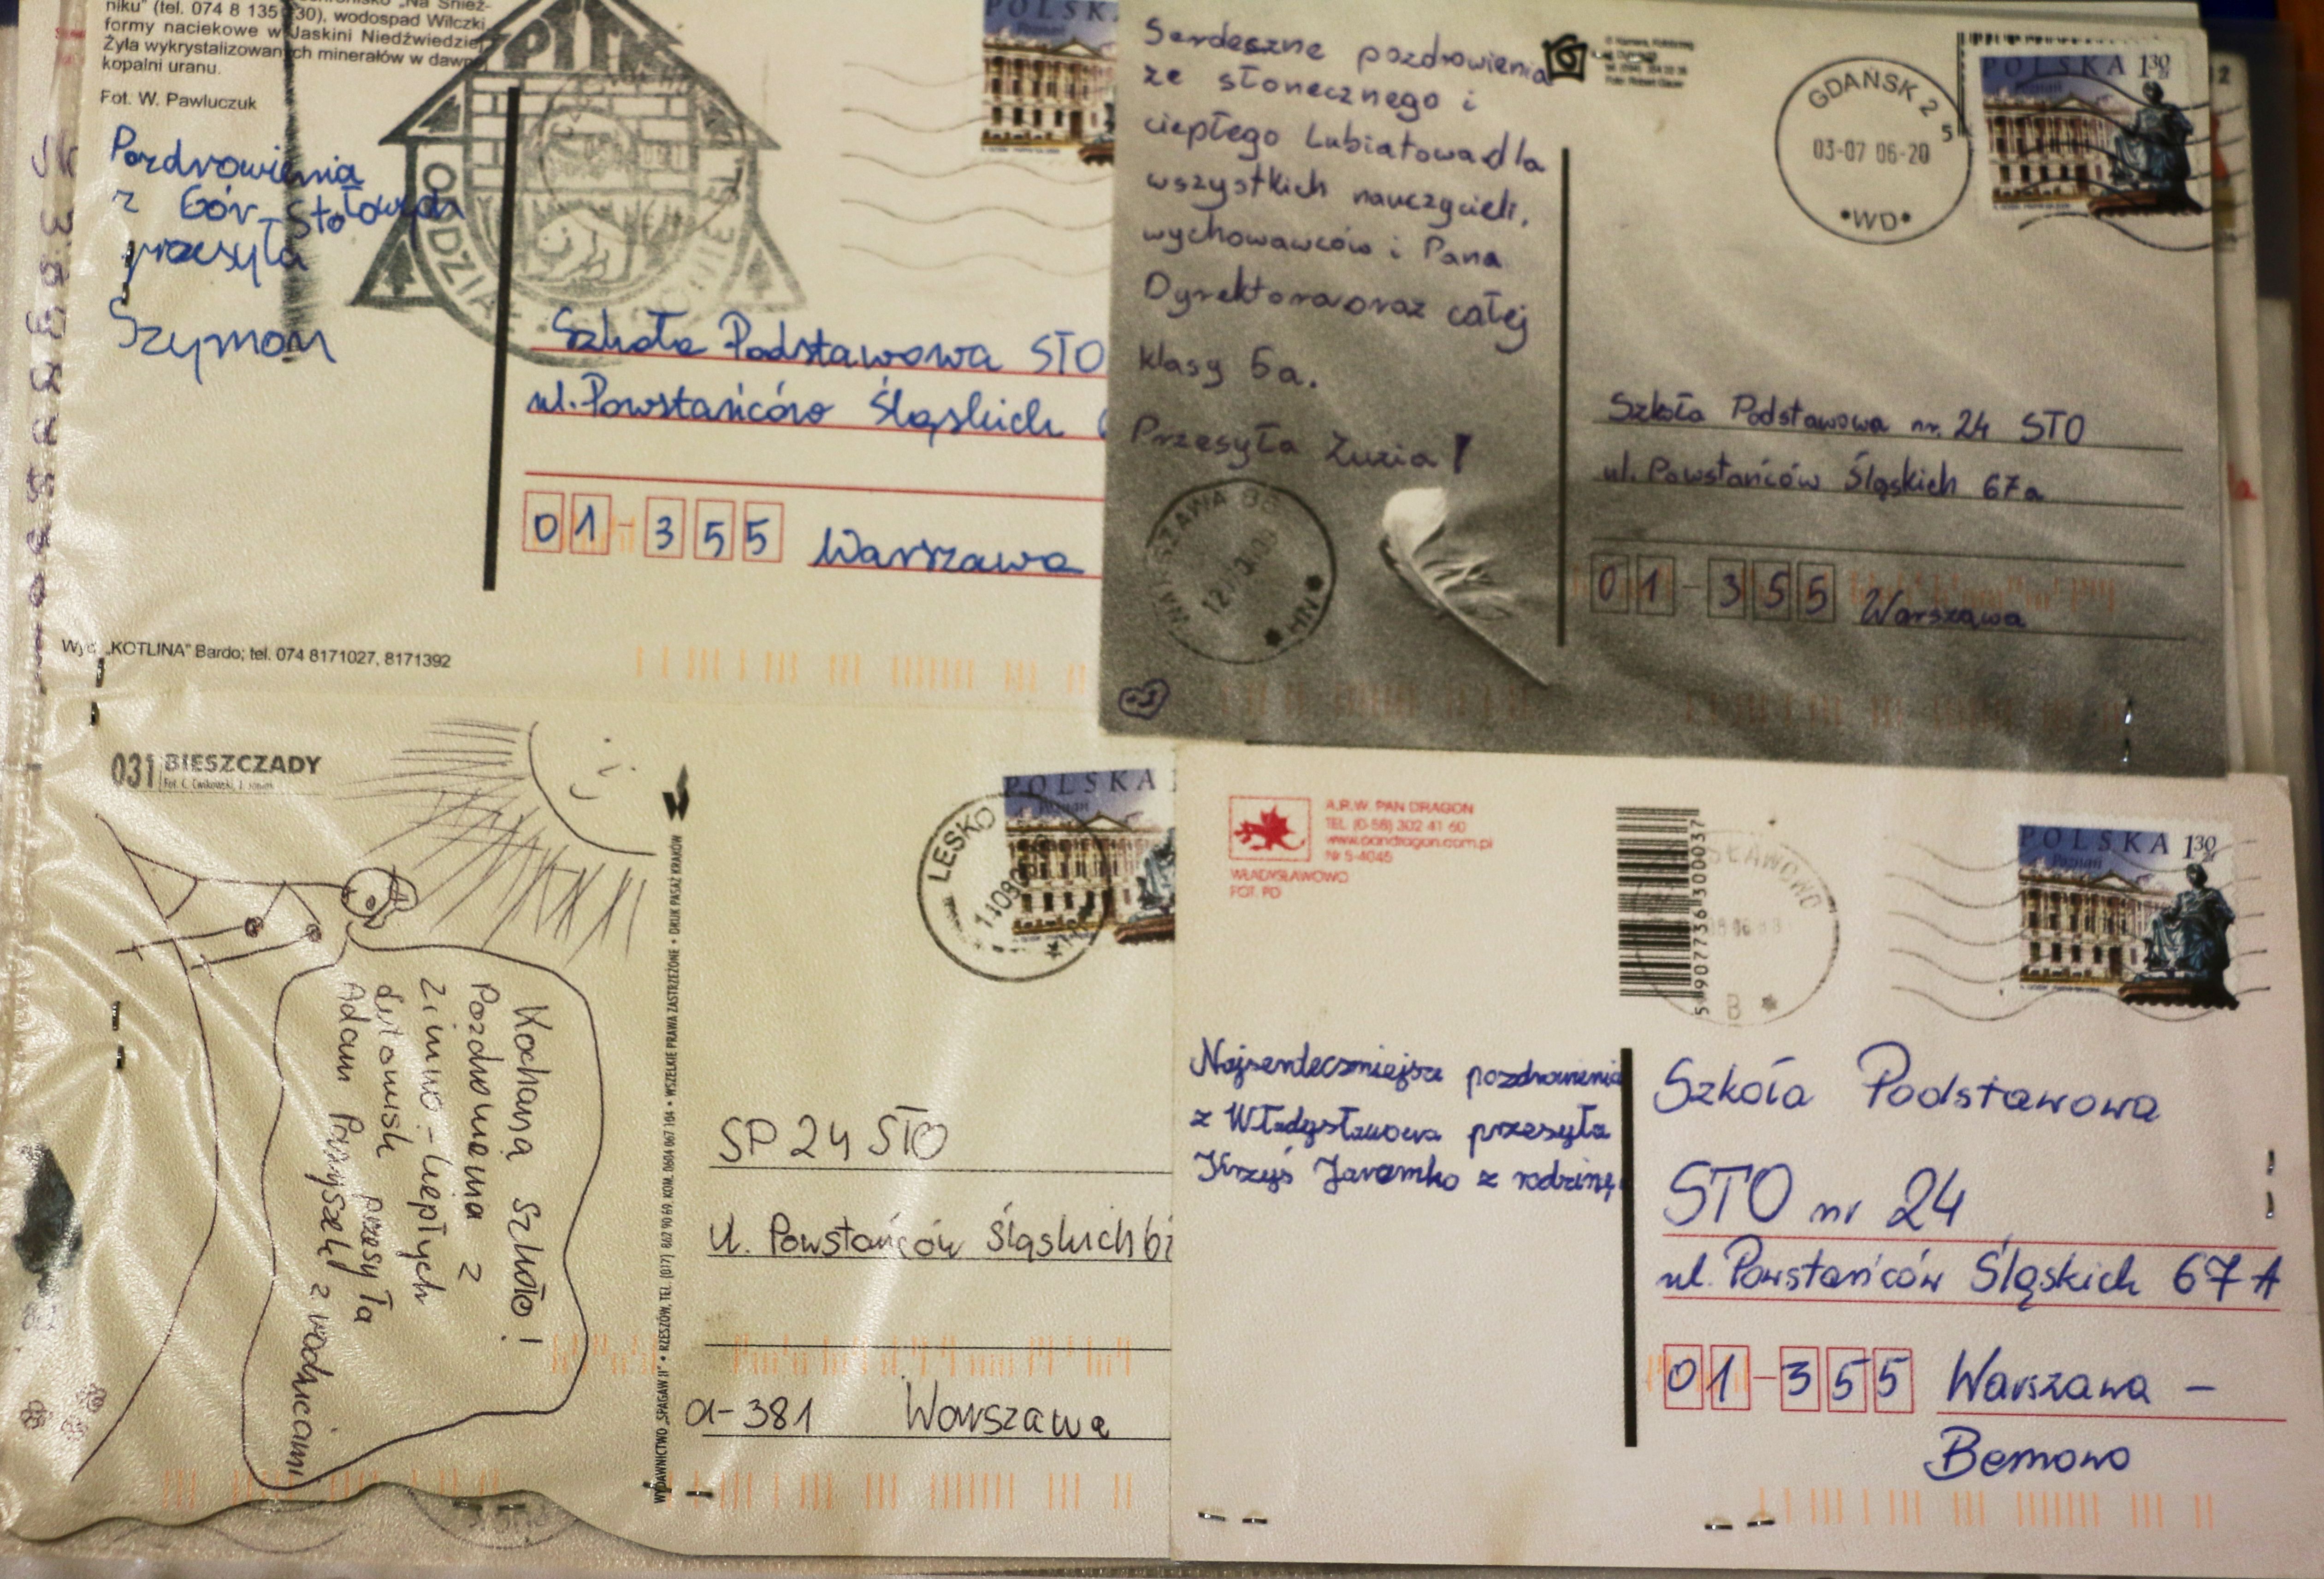 niku" (tel. 074 8 135 130), wodospad Wilczki
formy naciekowe w Jaskini Niedźwiedziej
Żyła wykrystalizowanych minerałów w dawnej
kopalni uranu.
Fot. W. Pawluczuk
Pozdrowienia
z Gór Stołowych
przesyła
Szymon
PTTK
ODDZIAŁ
POLSKA
Szkoła Podstawowa STO
ul. Powstańców Śląskich
01-355 Warszawa
Wyd. „KOTLINA" Bardo; tel. 074 8171027, 8171392
Serdeczne pozdrowienia
ze słonecznego i
ciepłego Lubiatowa dla
wszystkich nauczycieli,
wychowawców i Pana
Dyrektora oraz całej
klasy 5a.
Przesyła Zuzia!
GDAŃSK 2
5
03-07 06-20
*WD*
POLSKA 1 30 zł
Poznań
Szkoła Podstawowa nr. 24 STO
ul. Powstańców Śląskich 67a
01-355 Warszawa
031 BIESZCZADY
Kochana Szkoło!
Pozdrowienia z
Zimno-Ciepłych
przesyła
Adam Przyszeł z rodzicami
WYDAWNICTWO „SPAGAW II" • RZESZÓW, TEL. (017) 862 90 69, KOM. 0604 067 104 • WSZELKIE PRAWA ZASTRZEŻONE • DRUK PASAŻ KRAKÓW
LESKO
POLSKA
Poznań
SP 24 STO
Ul. Powstańców Śląskich
01-381 Warszawa
A.R.W. PAN DRAGON
TEL. (0-58) 302 41 60
www.pandragon.com.pl
Nr 5-4045
WŁADYSŁAWOWO
FOT. PD
5 907736 300037
SŁAWOWO
B *
POLSKA 1 30 zł
Poznań
Najserdeczniejsze pozdrowienia
z Władysławowa przesyła
Krzyś Jaromko z rodziną
Szkoła Podstawowa
STO nr 24
ul. Powstańców Śląskich 67A
01-355 Warszawa -
Bemowo